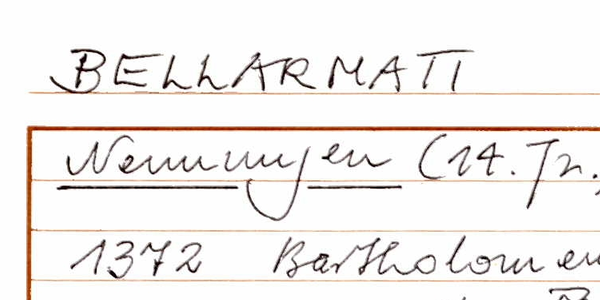 BELLARMATI
Nennungen (14. Jh.,
1372 Bartholomeu